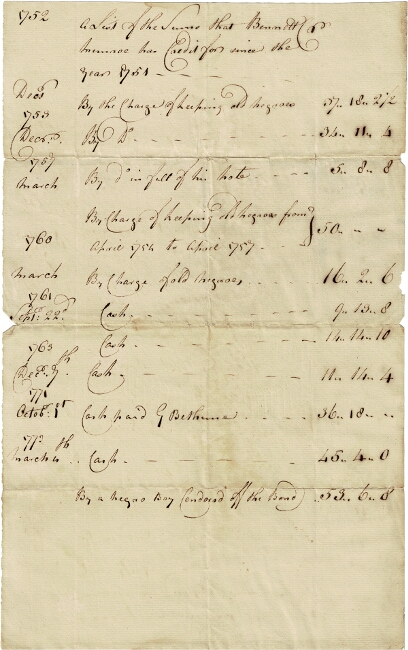 1752 A List of the Sums that Bennett
has Credit for since the
year 1751
Decr By the Charge of keeping old Negroes 37 " 18 " 2 1/2
1753
Decr. By Do 34 " 11 " 4
1757
March By Do in full of his Note 5 " 8 " 8
By Charge of keeping old Negroes from
April 1754 to April 1757 } 50 " " "
1760
March By Charge of old Negroes 16 " 2 " 6
1761
Sepr. 22d Cash 9 " 13 " 8
Cash 14 " 14 " 10
1763
Decr. 7th Cash 11 " 14 " 4
1771
Octobr. 1st Cash paid G Bethune 36 " 18 " "
1773
March th Cash 45 " 4 " 0
By a Negro Boy Endorsed off the Bond 53 " 6 " 8